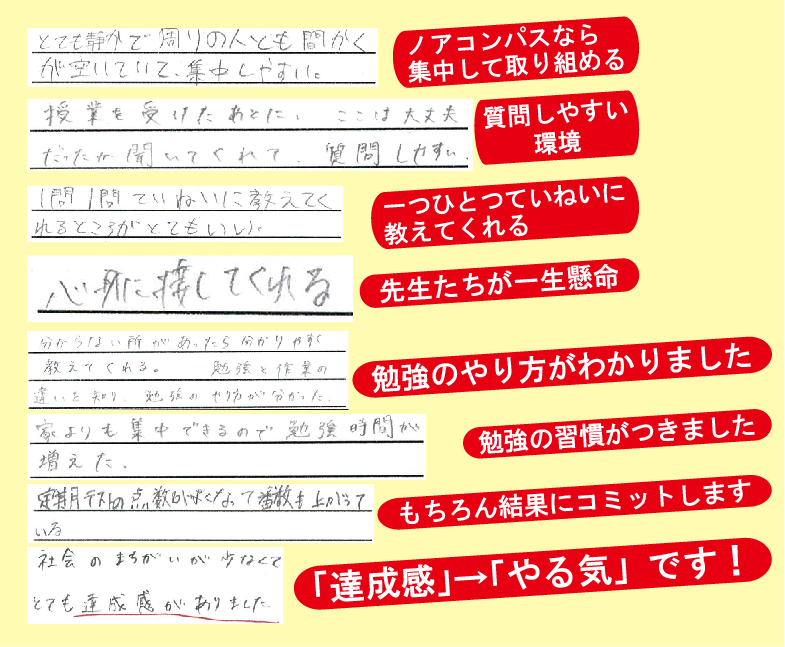 とても静かで周りの人とも間かく
が空いていて、集中しやすい。
ノアコンパスなら
集中して取り組める
授業を受けたあとに、ここは大丈夫
だったか聞いてくれて、質問しやすい、
質問しやすい
環境
1問1問ていねいに教えてく
れるところがとてもいい。
一つひとつていねいに
教えてくれる
心身に接してくれる
先生たちが一生懸命
分からない所があったら分かりやすく
教えてくれる。 勉強と作業の
違いを知り、勉強のやり方が分かった、
勉強のやり方がわかりました
家よりも集中できるので勉強時間が
増えた、
勉強の習慣がつきました
定期テストの点数がよくなって番数も上がって
いる
もちろん結果にコミットします
社会のまちがいが少なくて
とても達成感がありました
「達成感」→「やる気」です！